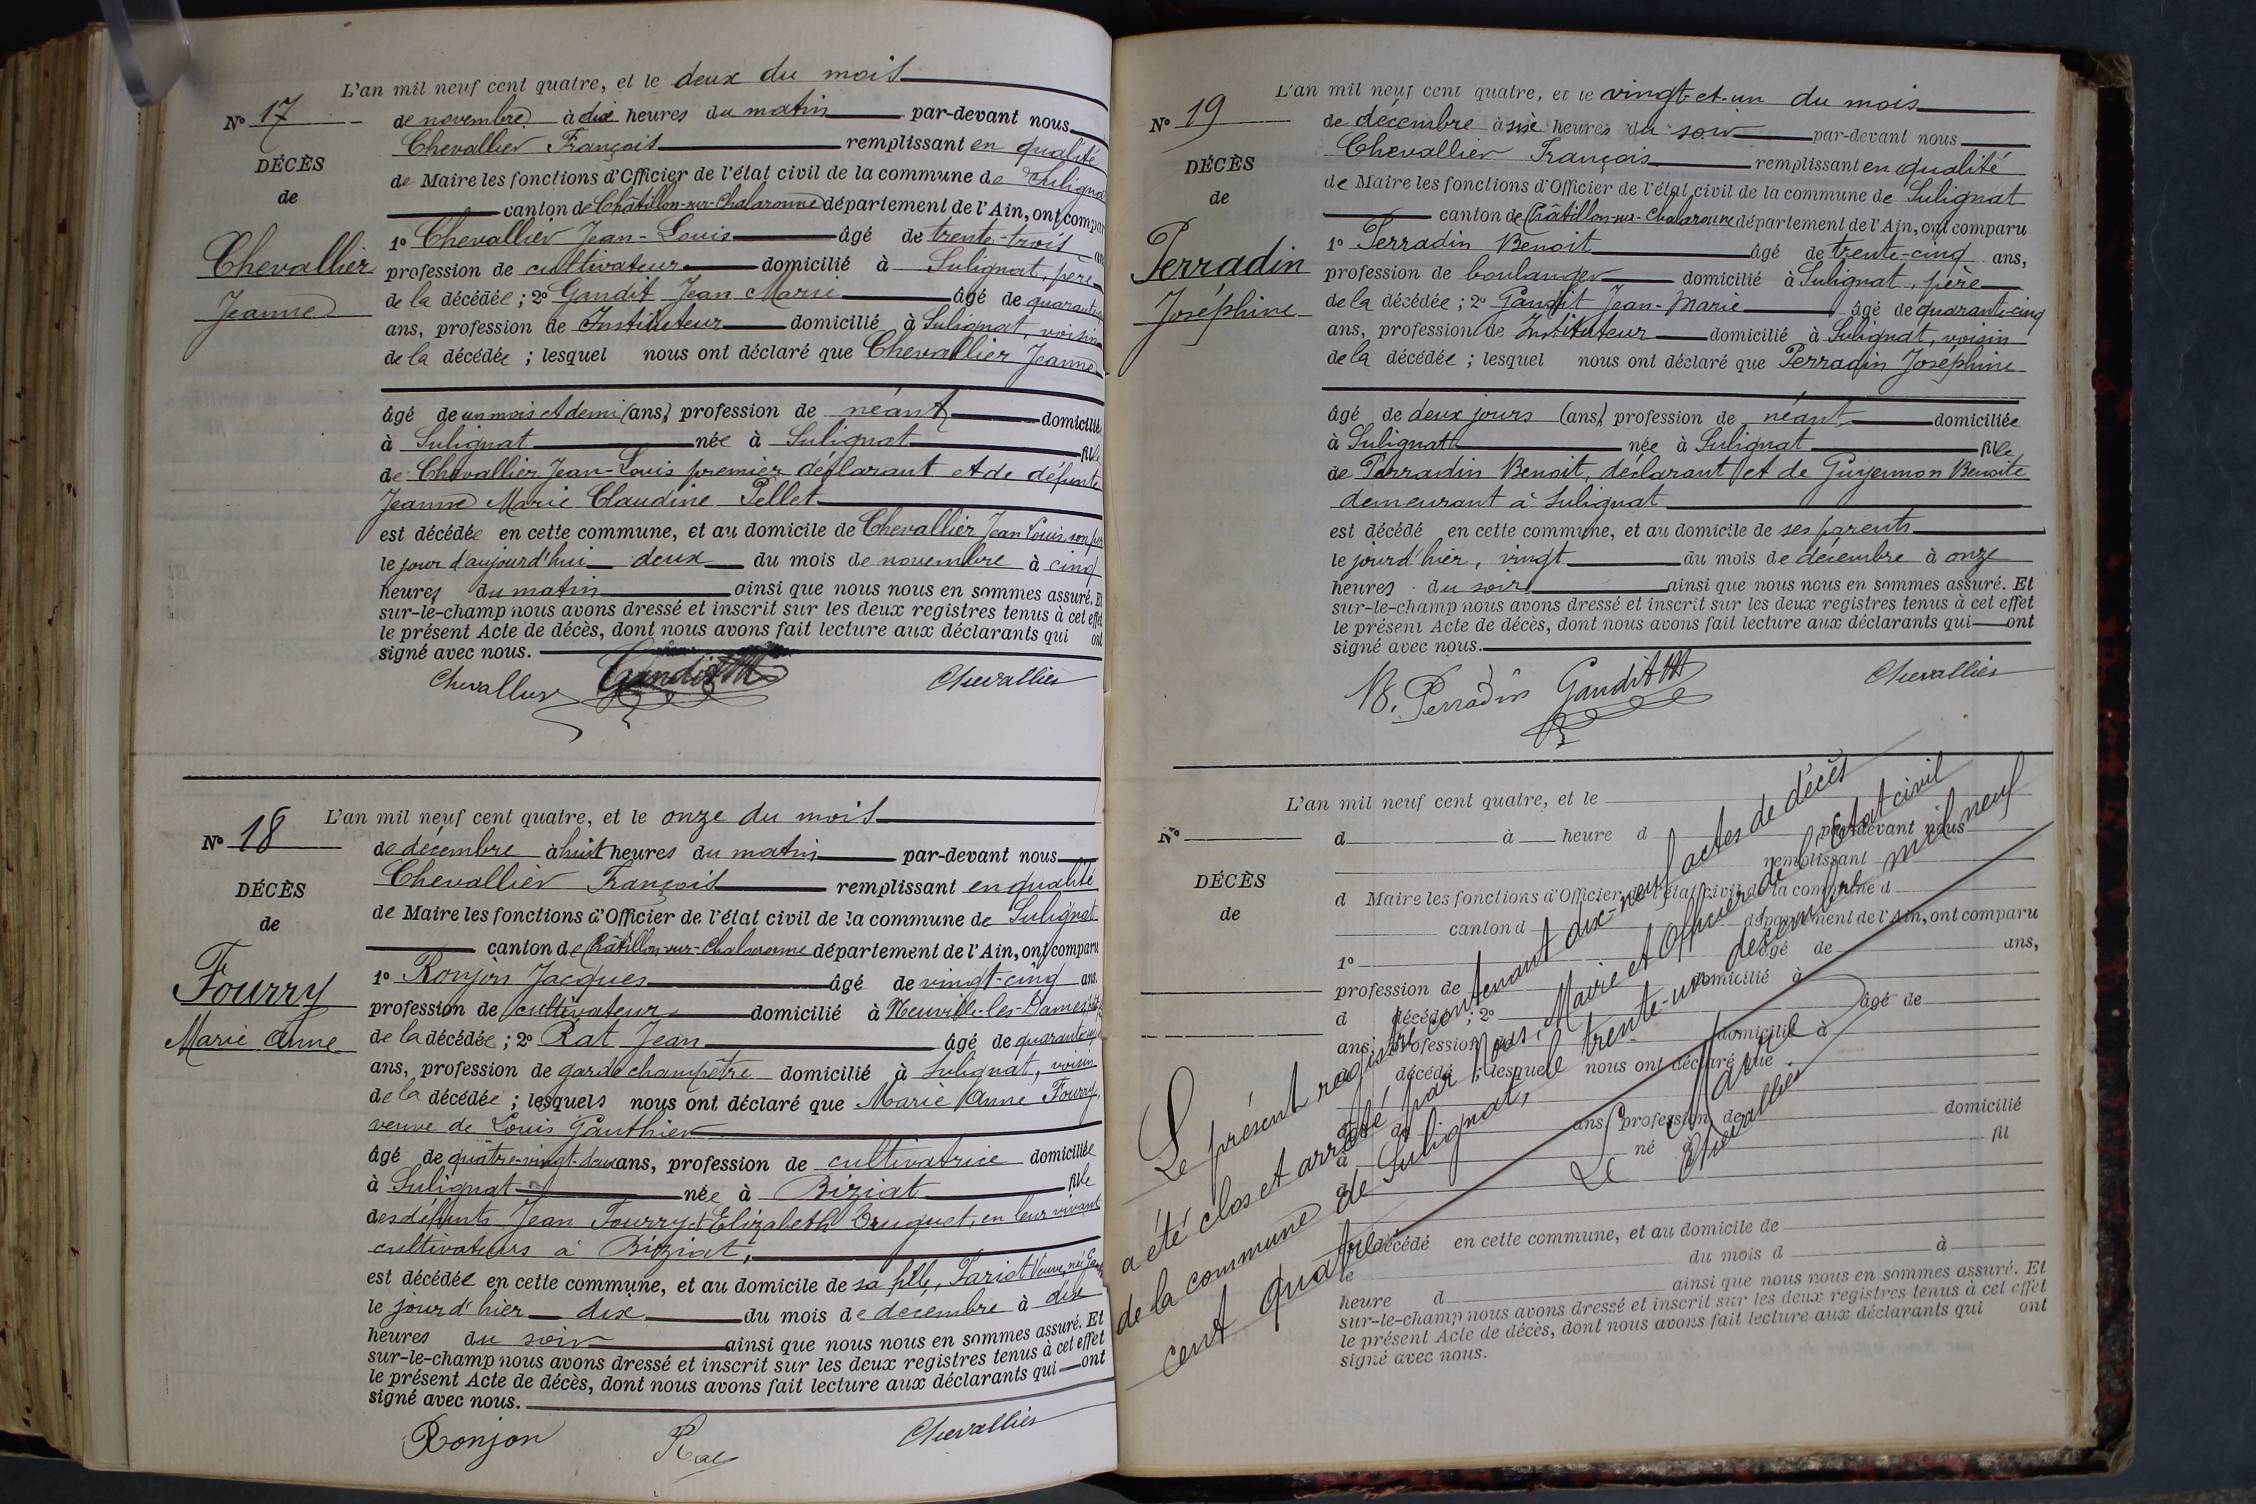 L'an mil neuf cent quatre, et le deux du mois
N° 17
de novembre à dix heures du matin par-devant nous
Chevallier François remplissant en qualité
DÉCÈS
de Maire les fonctions d'Officier de l'état civil de la commune de Sulignat
de
canton de Châtillon-sur-Chalaronne département de l'Ain, ont compar
1° Chevallier Jean-Louis âgé de trente-trois ans
Chevallier
profession de cultivateur domicilié à Sulignat, père
Jeanne
de la décédée ; 2° Gandit Jean Marie âgé de
ans, profession de Instituteur domicilié à Sulignat, voisin
de la décédée ; lesquel nous ont déclaré que Chevallier Jeanne
âgé de un mois et demi (ans) profession de néant domiciliée
à Sulignat née à Sulignat fille
de Chevallier Jean-Louis premier déclarant et de défunte
Jeanne Marie Claudine Pellet
est décédée en cette commune, et au domicile de Chevallier Jean Louis, son père
le jour d'aujourd'hui deux du mois de novembre à cinq
heures du matin ainsi que nous nous en sommes assuré. Et
sur-le-champ nous avons dressé et inscrit sur les deux registres tenus à cet effet
le présent Acte de décès, dont nous avons fait lecture aux déclarants qui ont
signé avec nous.
Chevallier Gandit JM Chevallier
L'an mil neuf cent quatre, et le onze du mois
N° 18
de décembre à huit heures du matin par-devant nous
Chevallier François remplissant en qualité
DÉCÈS
de Maire les fonctions d'Officier de l'état civil de la commune de Sulignat
de
canton de Châtillon-sur-Chalaronne département de l'Ain, ont comparu
1° Ronjon Jacques âgé de vingt-cinq ans
Fourry
profession de cultivateur domicilié à Neuville-les-Dames,
Marie Anne
de la décédée ; 2° Rat Jean âgé de
ans, profession de garde champêtre domicilié à Sulignat, voisin
de la décédée ; lesquels nous ont déclaré que Marie Anne Fourry,
veuve de Louis Gauthier
âgé de quatre-vingt-deux ans, profession de cultivatrice domiciliée
à Sulignat née à Biziat fille
des défunts Jean Fourry et Elizabeth Bruguet, en leur vivant
cultivateurs à Biziat,
est décédée en cette commune, et au domicile de sa fille, Pariat Veuve, née
le jour d'hier dix du mois de décembre à dix
heures du soir ainsi que nous nous en sommes assuré. Et
sur-le-champ nous avons dressé et inscrit sur les deux registres tenus à cet effet
le présent Acte de décès, dont nous avons fait lecture aux déclarants qui ont
signé avec nous.
Ronjon Rat Chevallier
L'an mil neuf cent quatre, et le vingt-et-un du mois
N° 19
de décembre à six heures du soir par-devant nous
Chevallier François remplissant en qualité
DÉCÈS
de Maire les fonctions d'Officier de l'état civil de la commune de Sulignat
de
canton de Châtillon-sur-Chalaronne département de l'Ain, ont comparu
1° Perradin Benoit âgé de trente-cinq ans,
Perradin
profession de boulanger domicilié à Sulignat, père
Joséphine
de la décédée ; 2° Gandit Jean-Marie âgé de quarante-cinq
ans, profession de Instituteur domicilié à Sulignat, voisin
de la décédée ; lesquel nous ont déclaré que Perradin Joséphine
âgé de deux jours (ans) profession de néant domiciliée
à Sulignat née à Sulignat fille
de Perradin Benoit, déclarant et de Guyennon Benoite
demeurant à Sulignat
est décédé en cette commune, et au domicile de ses parents
le jour d'hier, vingt du mois de décembre à onze
heures du soir ainsi que nous nous en sommes assuré. Et
sur-le-champ nous avons dressé et inscrit sur les deux registres tenus à cet effet
le présent Acte de décès, dont nous avons fait lecture aux déclarants qui ont
signé avec nous.
B. Perradin Gandit JM Chevallier
L'an mil neuf cent quatre, et le
N° d à heure d par-devant nous
remplissant
DÉCÈS
d Maire les fonctions d'Officier de l'état civil de la commune d
de
canton d département de l'Ain, ont comparu
1° âgé de ans,
profession de domicilié à
d décédé ; 2° âgé de
ans, profession de domicilié à
d décédé ; lesquel nous ont déclaré que
âgé de ans, profession de domicilié
à né à fil
de
est décédé en cette commune, et au domicile de
le du mois d à
heure d ainsi que nous nous en sommes assuré. Et
sur-le-champ nous avons dressé et inscrit sur les deux registres tenus à cet effet
le présent Acte de décès, dont nous avons fait lecture aux déclarants qui ont
signé avec nous.
Le présent registre contenant dix-neuf actes de décès
a été clos et arrêté par Nous, Maire et Officier de l'Etat civil
de la commune de Sulignat, le trente-un décembre mil neuf
cent quatre
Le Maire
Chevallier